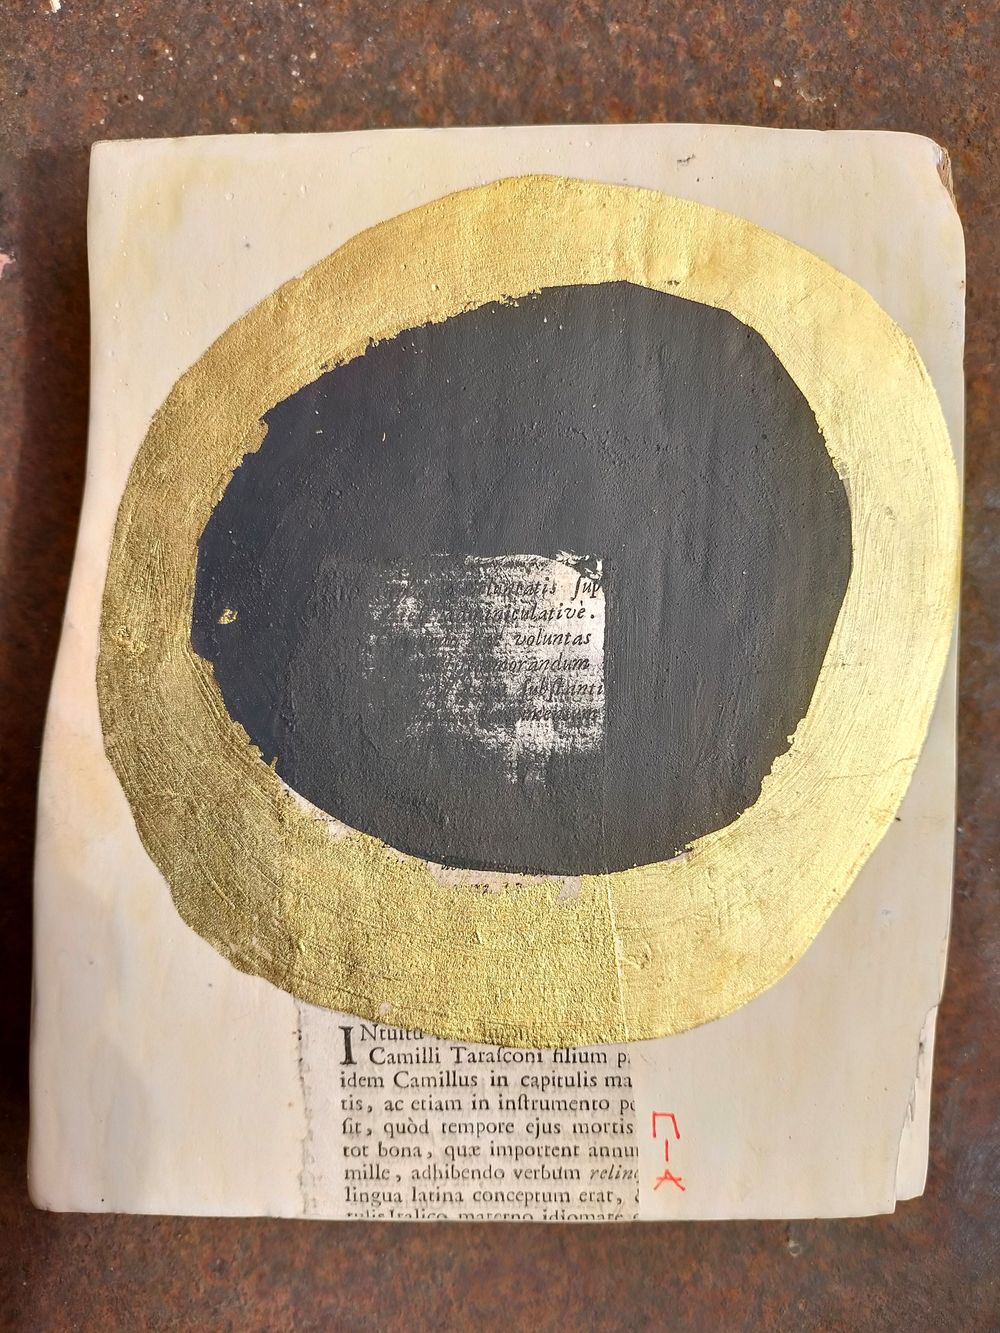 voluntatis ſup
voluntas
ſubſtanti
INtuitu
Camilli Taraſconi filium p
idem Camillus in capitulis ma
tis, ac etiam in inſtrumento pe
ſit, quòd tempore ejus mortis
tot bona, quæ importent annu
mille, adhibendo verbum relinq
lingua latina conceptum erat,
tulis Italico materno idiomate
П
I
A